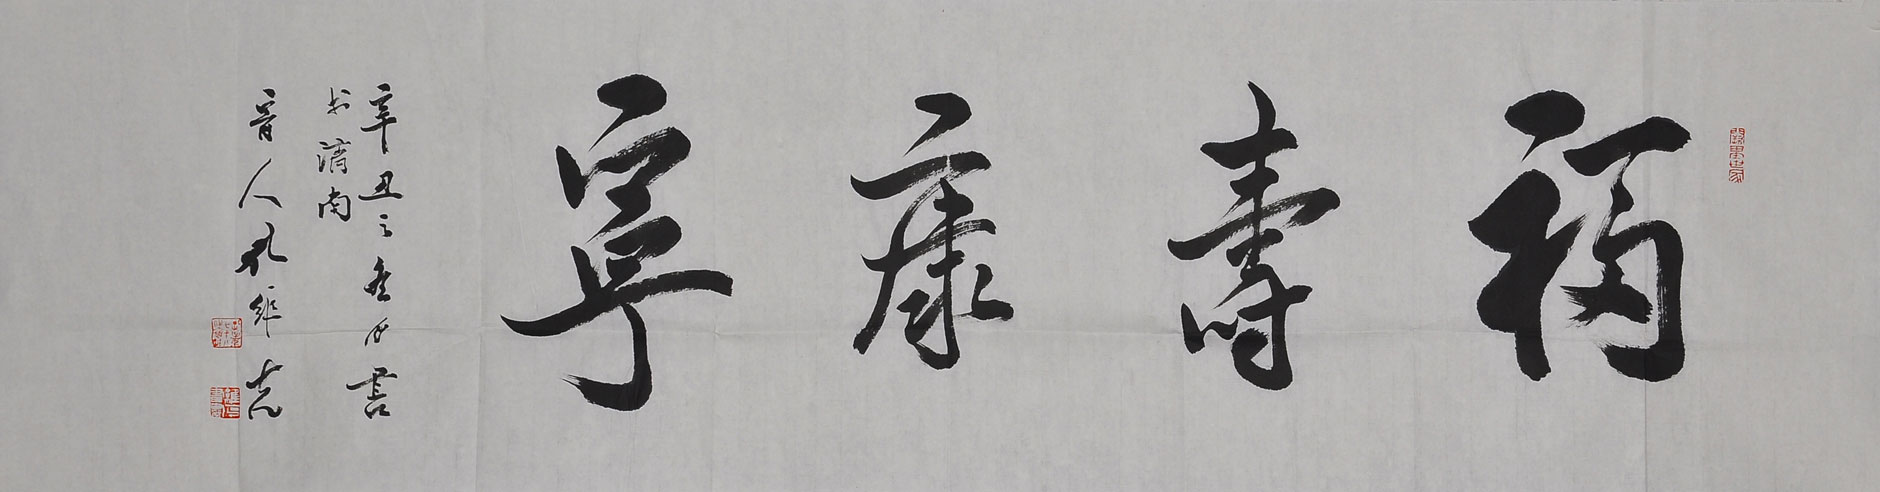 福壽康寧
辛丑之冬月書
於濟南
晉人孔維克